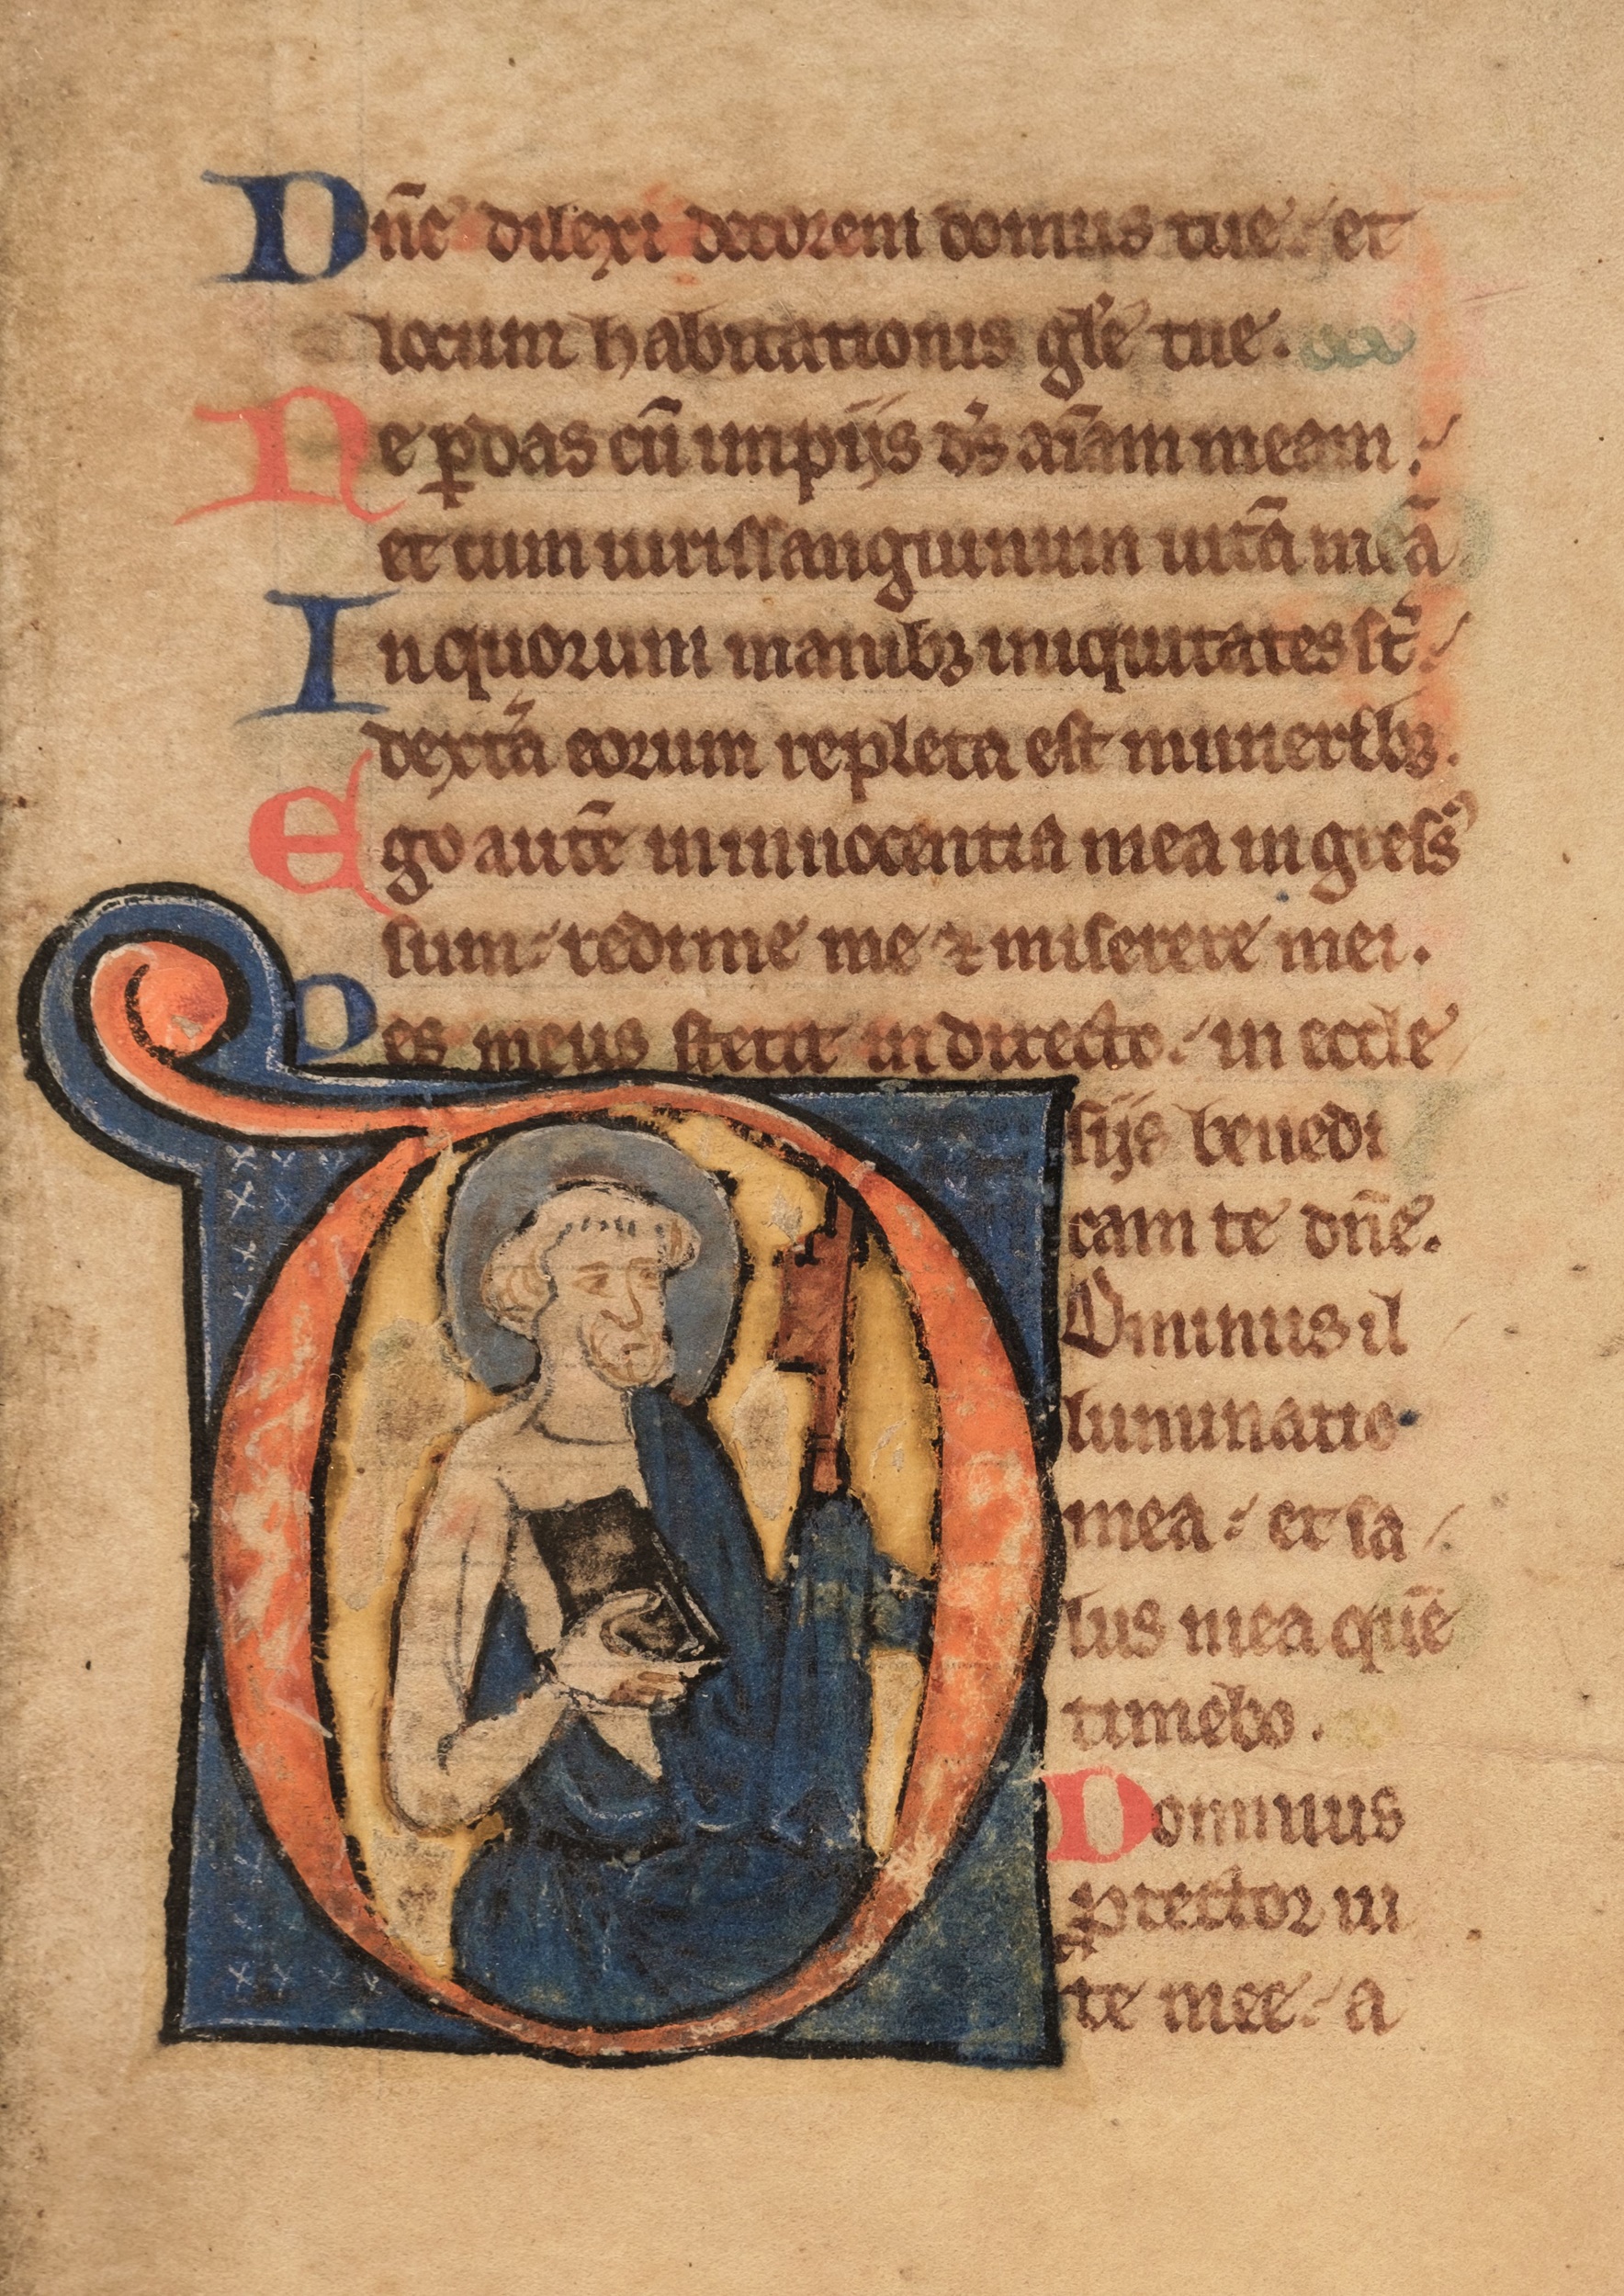 Dñe dilexi decorem domus tue: et
locum habitationis gl̃e tue.
Ne ꝑdas cũ impijs d̾s aĩam meam:
et cum uiris sanguinum uitã meã
In quorum manibꝫ iniquitates st̃:
dext̾a eorum repleta est muneribꝫ.
Ego autẽ in innocentia mea ingress᷒
sum: redime me ⁊ miserere mei.
Pes meus stetit in directo: in eccle
sijs benedi
cam te dñe.
Dominus il
luminatio
mea: et sa
lus mea quẽ
timebo.
Dominus
ꝓtector ui
te mee: a